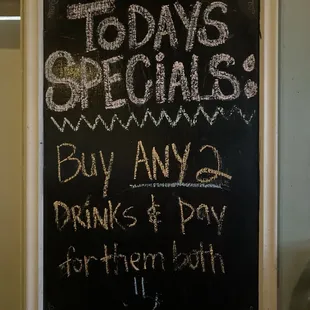 TODAYS
SPECIALS:
Buy ANY 2
DRINKS & pay
for them both